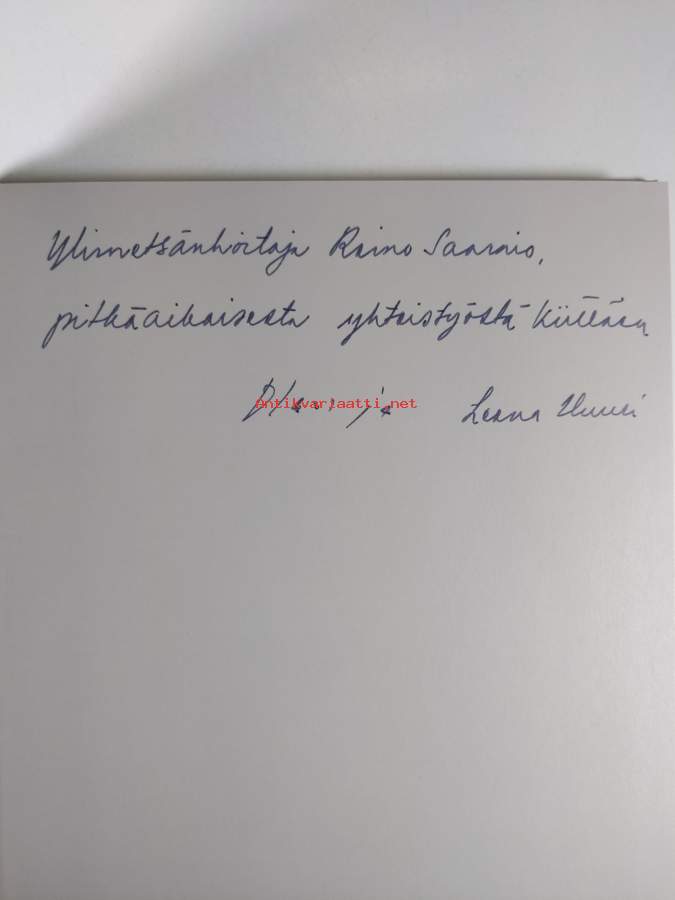 Ylimetsänhoitaja Raino Saarnio,
pitkäaikaisesta yhteistyöstä kiittäen
Antikvariaatti.net
Leena